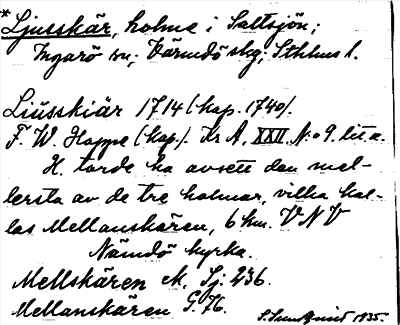 *Ljusskär, holme i Saltsjön;
Ingarö sn; Värmdö skg; Sthlms l.
Liússkiär 1714 (kop. 1740).
F. W. Hoppe (kop.). Kr A, XXII N:o 9. lit a.
H. torde ha avsett den mel-
lersta av de tre holmar, vilka kal-
las Mellanskären, 6 km. VNV
Nämdö kyrka.
Mellskären ek, Sj. 236.
Mellanskären G. 76.
1935.